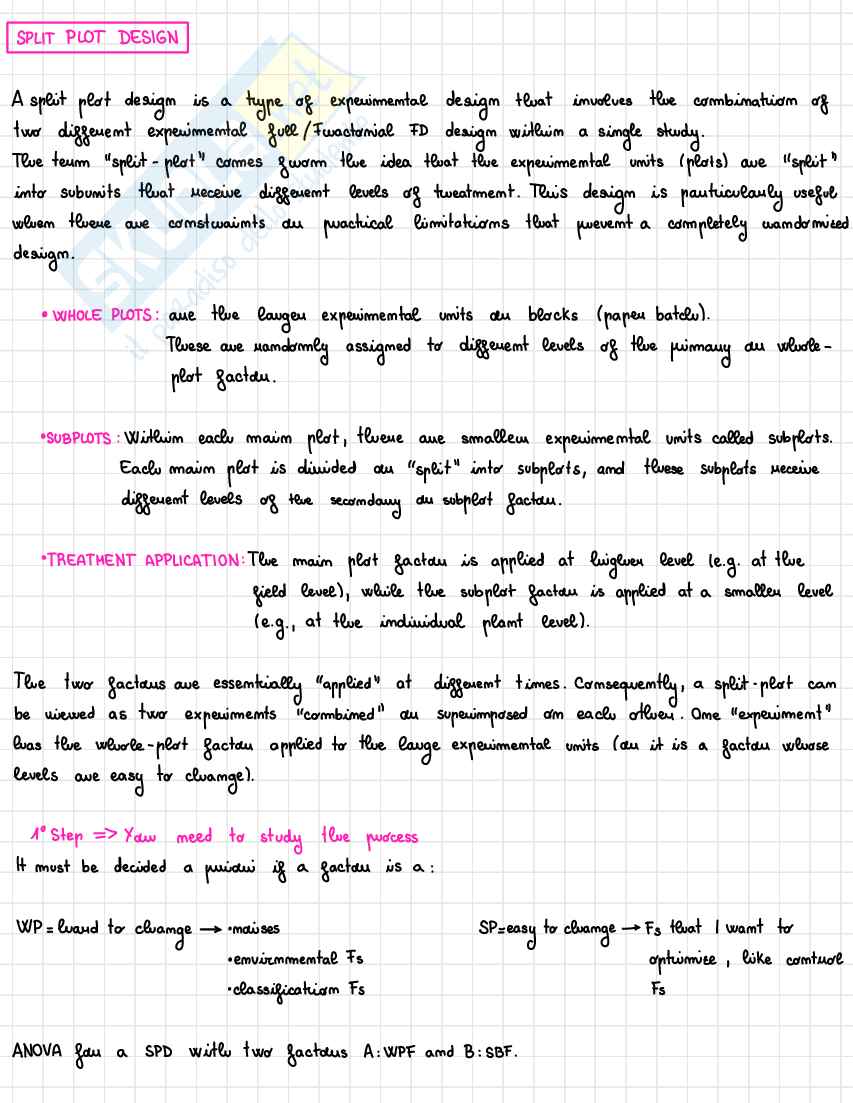 SPLIT PLOT DESIGN
A split plot design is a type of experimental design that involves the combination of
two different experimental full/Fractorial FD design within a single study.
The term "split-plot" comes from the idea that the experimental units (plots) are "split"
into subunits that receive different levels of treatment. This design is particularly useful
when there are constraints or practical limitations that prevent a completely randomized
design.
• WHOLE PLOTS: are the larger experimental units or blocks (paper batch).
These are randomly assigned to different levels of the primary or whole-
plot factor.
•SUBPLOTS: Within each main plot, there are smaller experimental units called subplots.
Each main plot is divided or "split" into subplots, and these subplots receive
different levels of the secondary or subplot factor.
•TREATMENT APPLICATION: The main plot factor is applied at higher level (e.g. at the
field level), while the subplot factor is applied at a smaller level
(e.g., at the individual plant level).
The two factors are essentially "applied" at different times. Consequently, a split-plot can
be viewed as two experiments "combined" or superimposed on each other. One "experiment"
has the whole-plot factor applied to the large experimental units (or it is a factor whose
levels are easy to change).
1° Step => You need to study the process
It must be decided a priori if a factor is a:
WP=hard to change → •noises
•envirnmental Fs
•classification Fs
SP=easy to change → Fs that I want to
optimize, like control
Fs
ANOVA for a SPD with two factors A:WPF and B:SBF.
SKUOLA.net
il paradiso dello studente